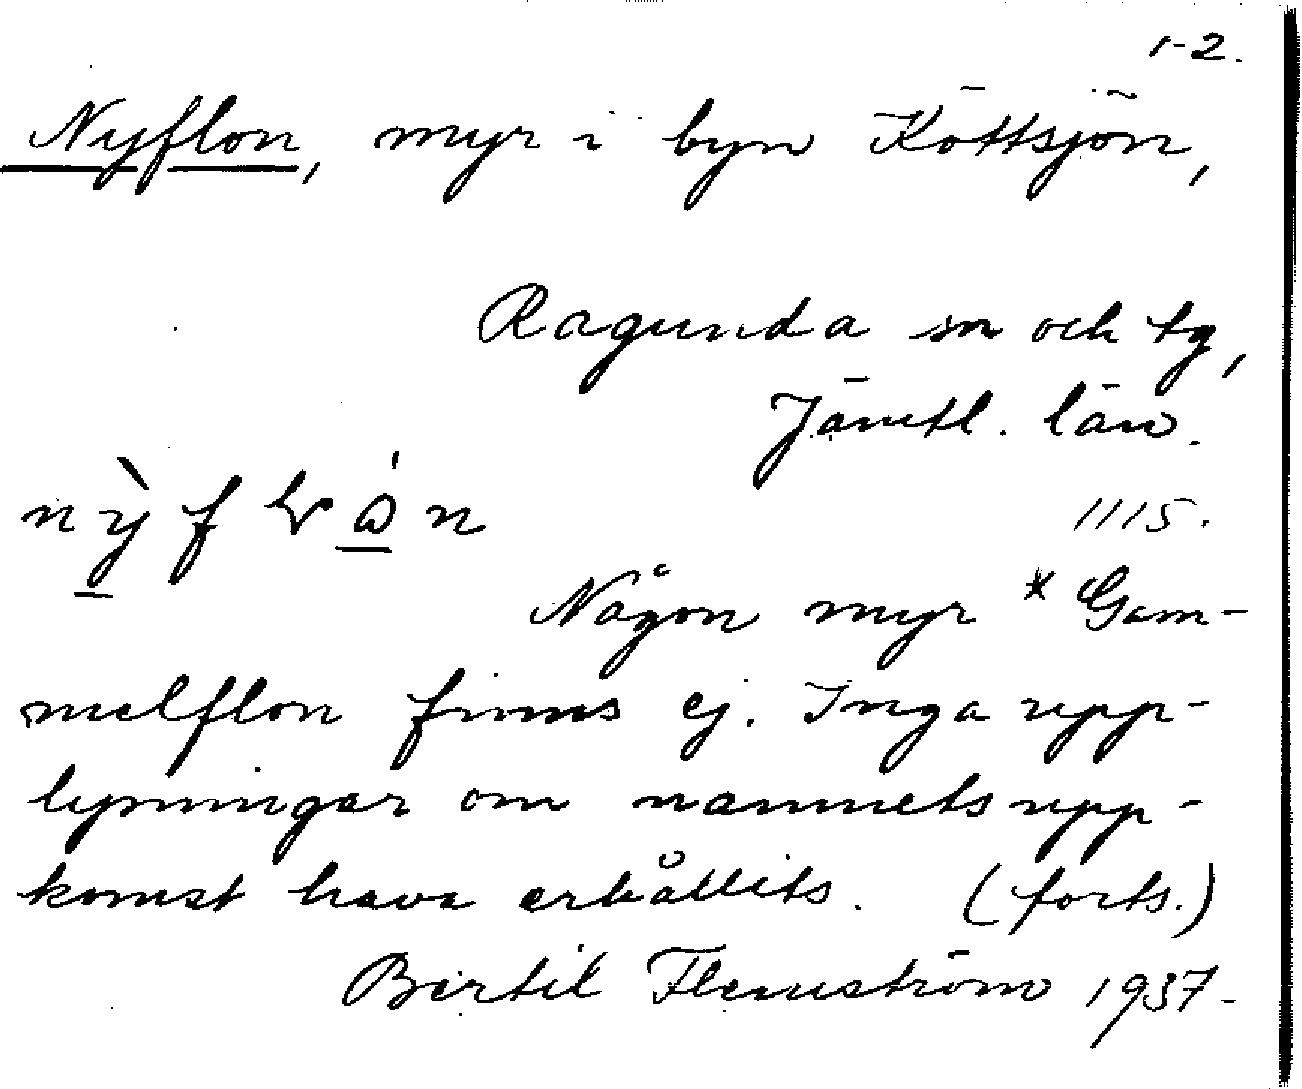 1-2.
Nyflon, myr i byn Köttsjön,
Ragunda sn och tg,
Jämtl. län.
1115.
Någon myr * Gam-
melflon finns ej. Inga upp-
lysningar om namnets upp-
komst hava erhållits. (forts.)
Bertil Flemström 1937-